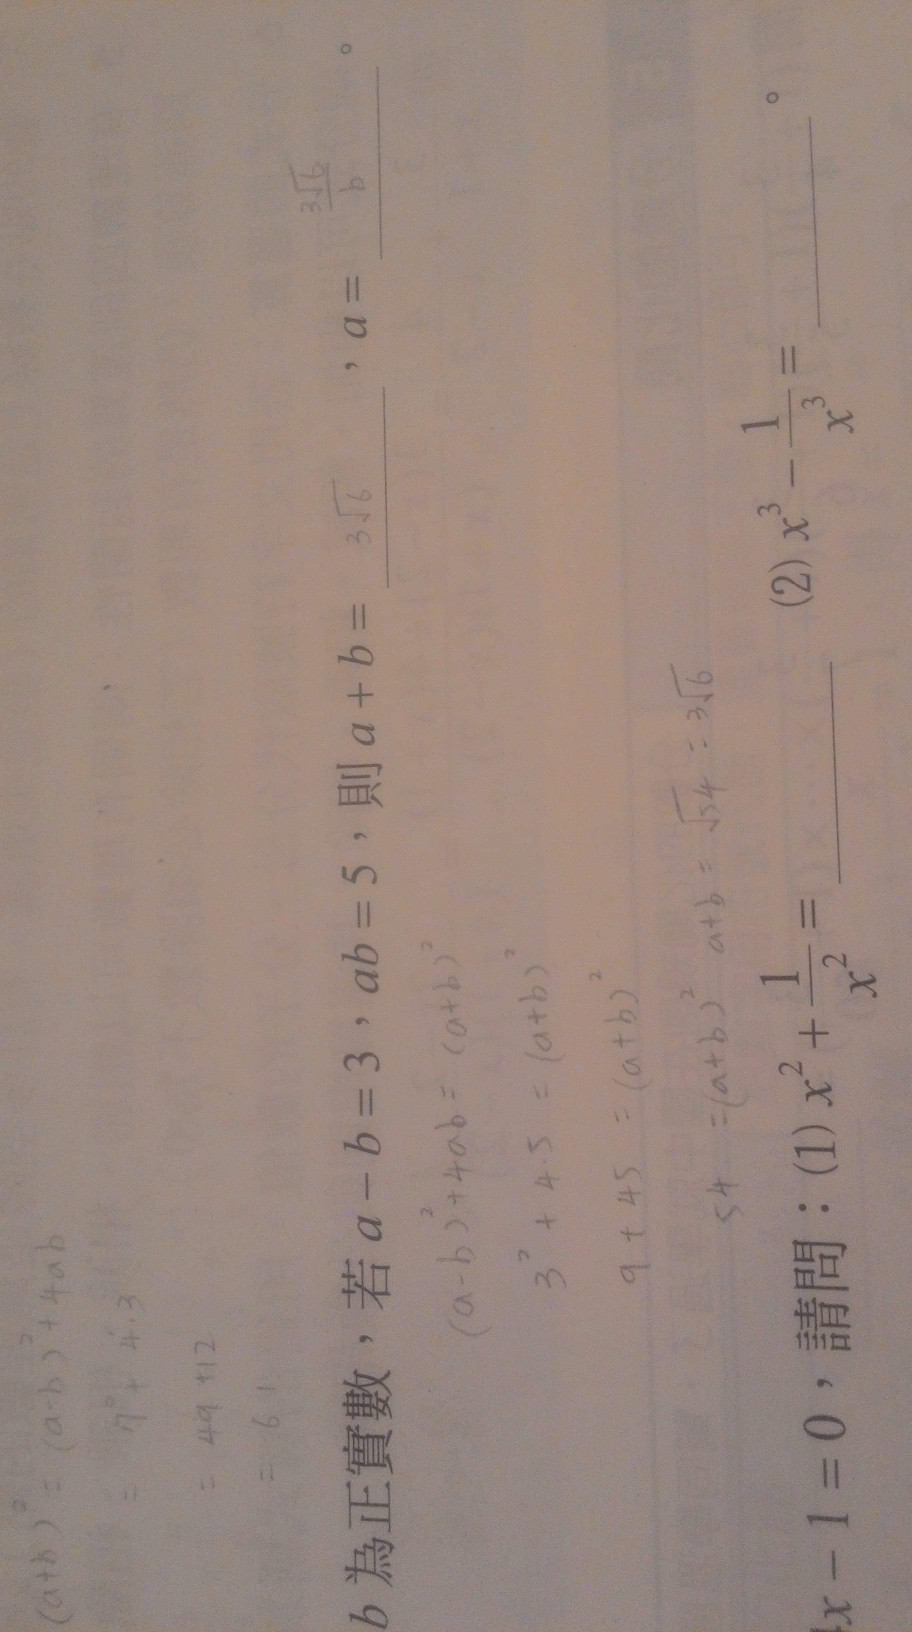 (a+b)² = (a-b)² + 4ab
= 7² + 4.3
= 49 + 12
= 61
b 為正實數，若 a − b = 3，ab = 5，則 a + b = 3√6，a = 3√6/b。
(a-b)² + 4ab = (a+b)²
3² + 4.5 = (a+b)²
9 + 45 = (a+b)²
54 = (a+b)² a+b = √54 = 3√6
x − 1 = 0，請問：(1) x² + 1/x² = ______ (2) x³ − 1/x³ = ______。